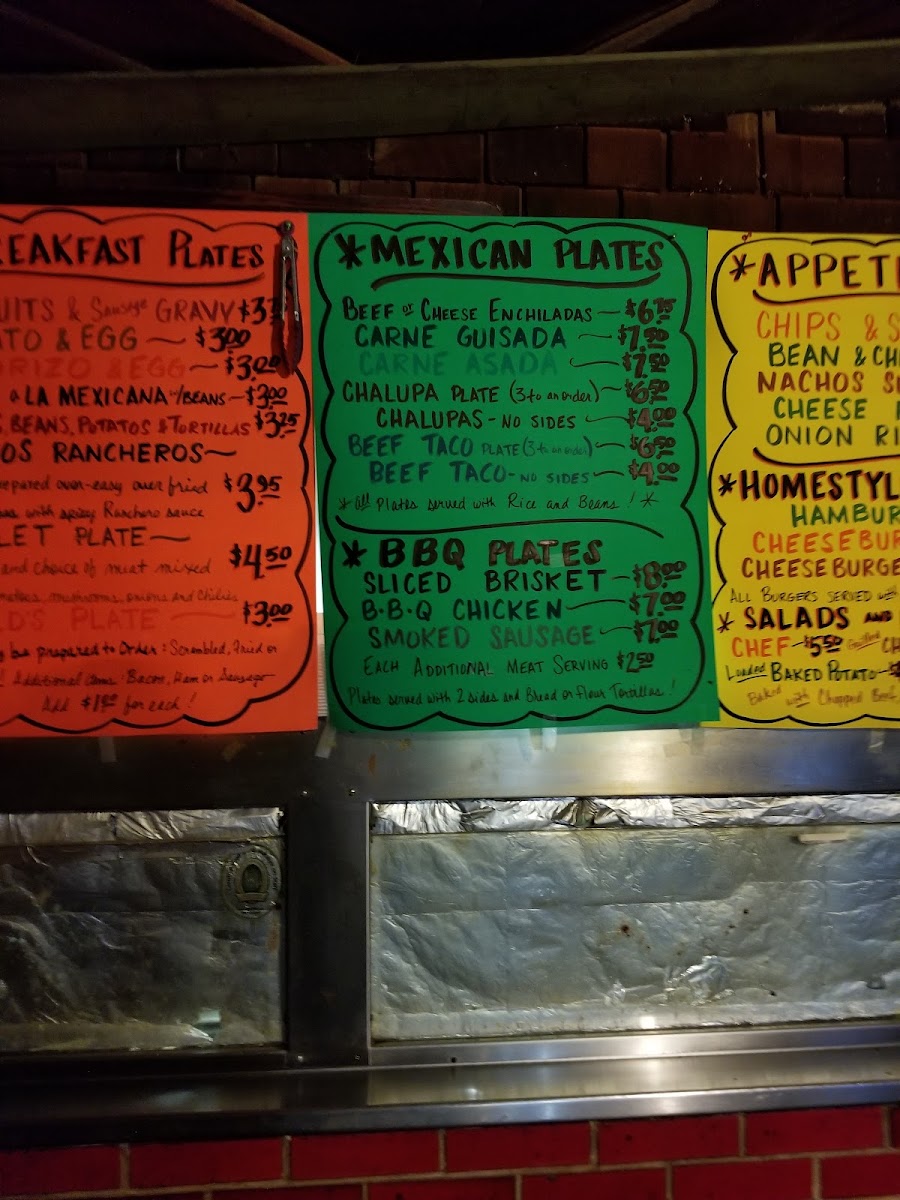 EAKFAST PLATES
UITS & Sausage GRAVY $3
TO & EGG — $3.00
ORIZO & EGG — $3.00
a LA MEXICANA w/BEANS — $3.00
, BEANS, POTATOS & TORTILLAS $3.25
OS RANCHEROS —
prepared over-easy over fried $3.95
with spicy Ranchero sauce
LET PLATE —
and choice of meat mixed $4.50
tomatoes, mushrooms, onions and Chilies
D'S PLATE — $3.00
be prepared to Order: Scrambled, Fried or
! Additional items: Bacon, Ham or Sausage
Add $1.00 for each!
* MEXICAN PLATES
BEEF or CHEESE ENCHILADAS — $6.75
CARNE GUISADA — $7.50
CARNE ASADA — $7.50
CHALUPA PLATE (3 to an order) — $6.50
CHALUPAS - NO SIDES — $4.00
BEEF TACO PLATE (3 to an order) — $6.50
BEEF TACO - NO SIDES — $4.00
* all Plates served with Rice and Beans! *
* BBQ PLATES
SLICED BRISKET — $8.00
B-B-Q CHICKEN — $7.00
SMOKED SAUSAGE — $7.00
EACH ADDITIONAL MEAT SERVING $2.50
Plates served with 2 sides and Bread or Flour Tortillas!
* APPETI
CHIPS & S
BEAN & CH
NACHOS S
CHEESE
ONION RI
* HOMESTYL
HAMBUR
CHEESEBUR
CHEESEBURGE
ALL BURGERS SERVED with
* SALADS AND
CHEF — $5.50 Grilled CH
Loaded BAKED POTATO — $
Baked with Chopped Beef,